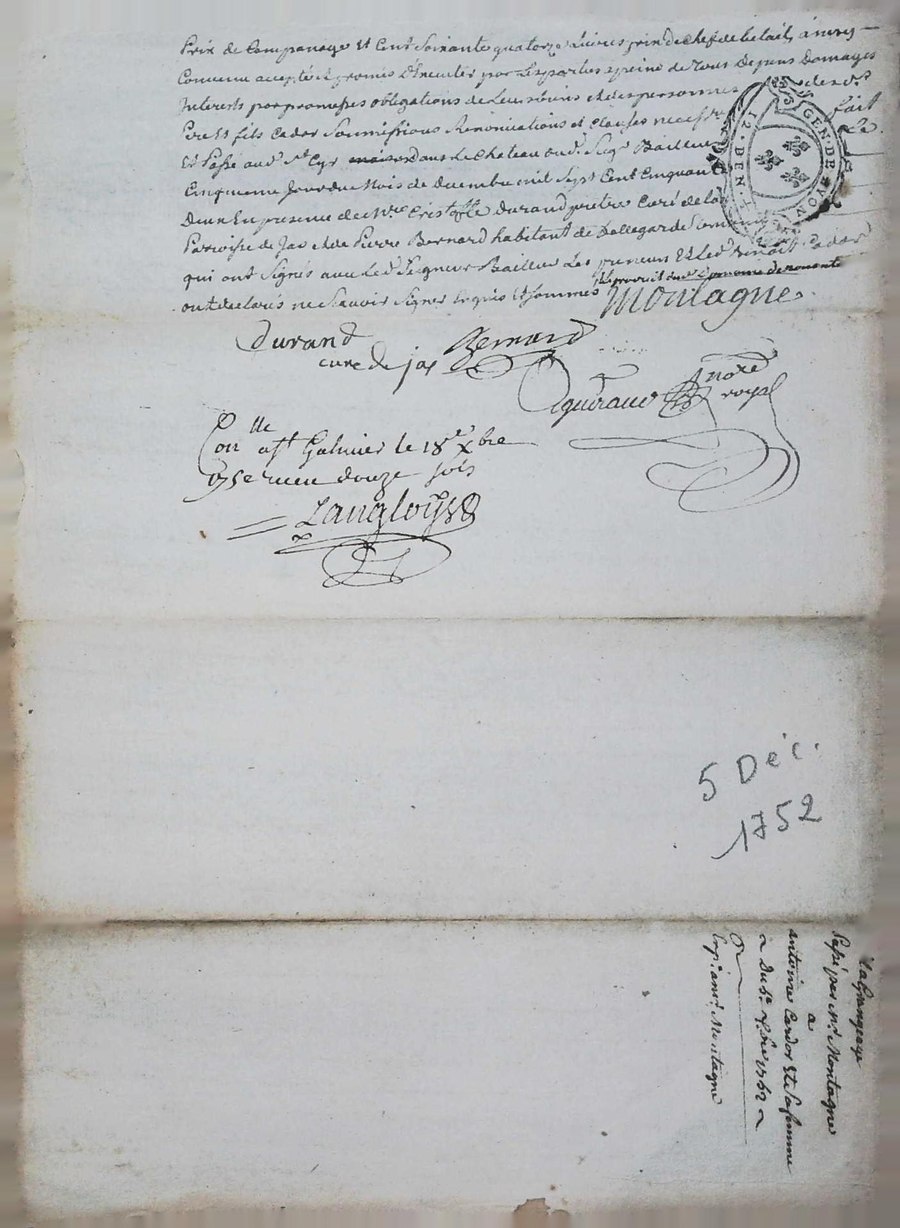 Prix de Componage Et Cent Soixante quatorze Livres
Convenu accepté et promis D'Executer par Les parties a peine de Tous Depens Domages
Interests par promesses obligations de Leurs biens et des personnes
fait
Pere et fils Cador Soumissions Renonciations et Clauses
Et Passé aud. St. Cyr dans Le Chateau dud. Seigr. Bailleur
Cinquieme Jour du Mois de Decembre mil Sept Cent Cinquante
Deux En presence de Mre Cristofle Durand pretre Curé de la
Paroisse de Jas et de Pierre Bernard habitant de Bellegarde
qui ont Signés avec Led. Seigneur Bailleur Les preneurs Et Led. Benoit Cador
ont declarés ne Scavoir Signer Enquis Et Sommés
Montagne
GEN. DE LYON
12. DEN.
Durand
curé de jas
Bernard
noré
royal
Con.lle a St Galmier le 18e Xbre
1752 recu douze sols
Langloys
5 Déc.
1752
Passé par Mr. Montagne
a
antoine Cador Et Sa femme
Du 5e Xbre 1752
Montagne